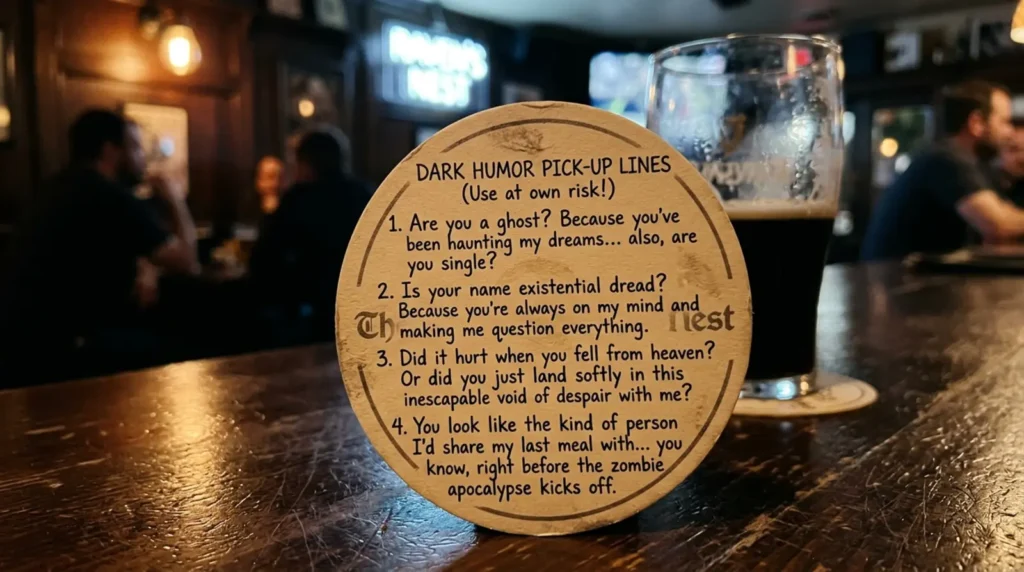 DARK HUMOR PICK-UP LINES
(Use at own risk!)
1. Are you a ghost? Because you've
been haunting my dreams... also, are
you single?
2. Is your name existential dread?
Because you're always on my mind and
making me question everything.
Th nest
3. Did it hurt when you fell from heaven?
Or did you just land softly in this
inescapable void of despair with me?
4. You look like the kind of person
I'd share my last meal with... you
know, right before the zombie
apocalypse kicks off.